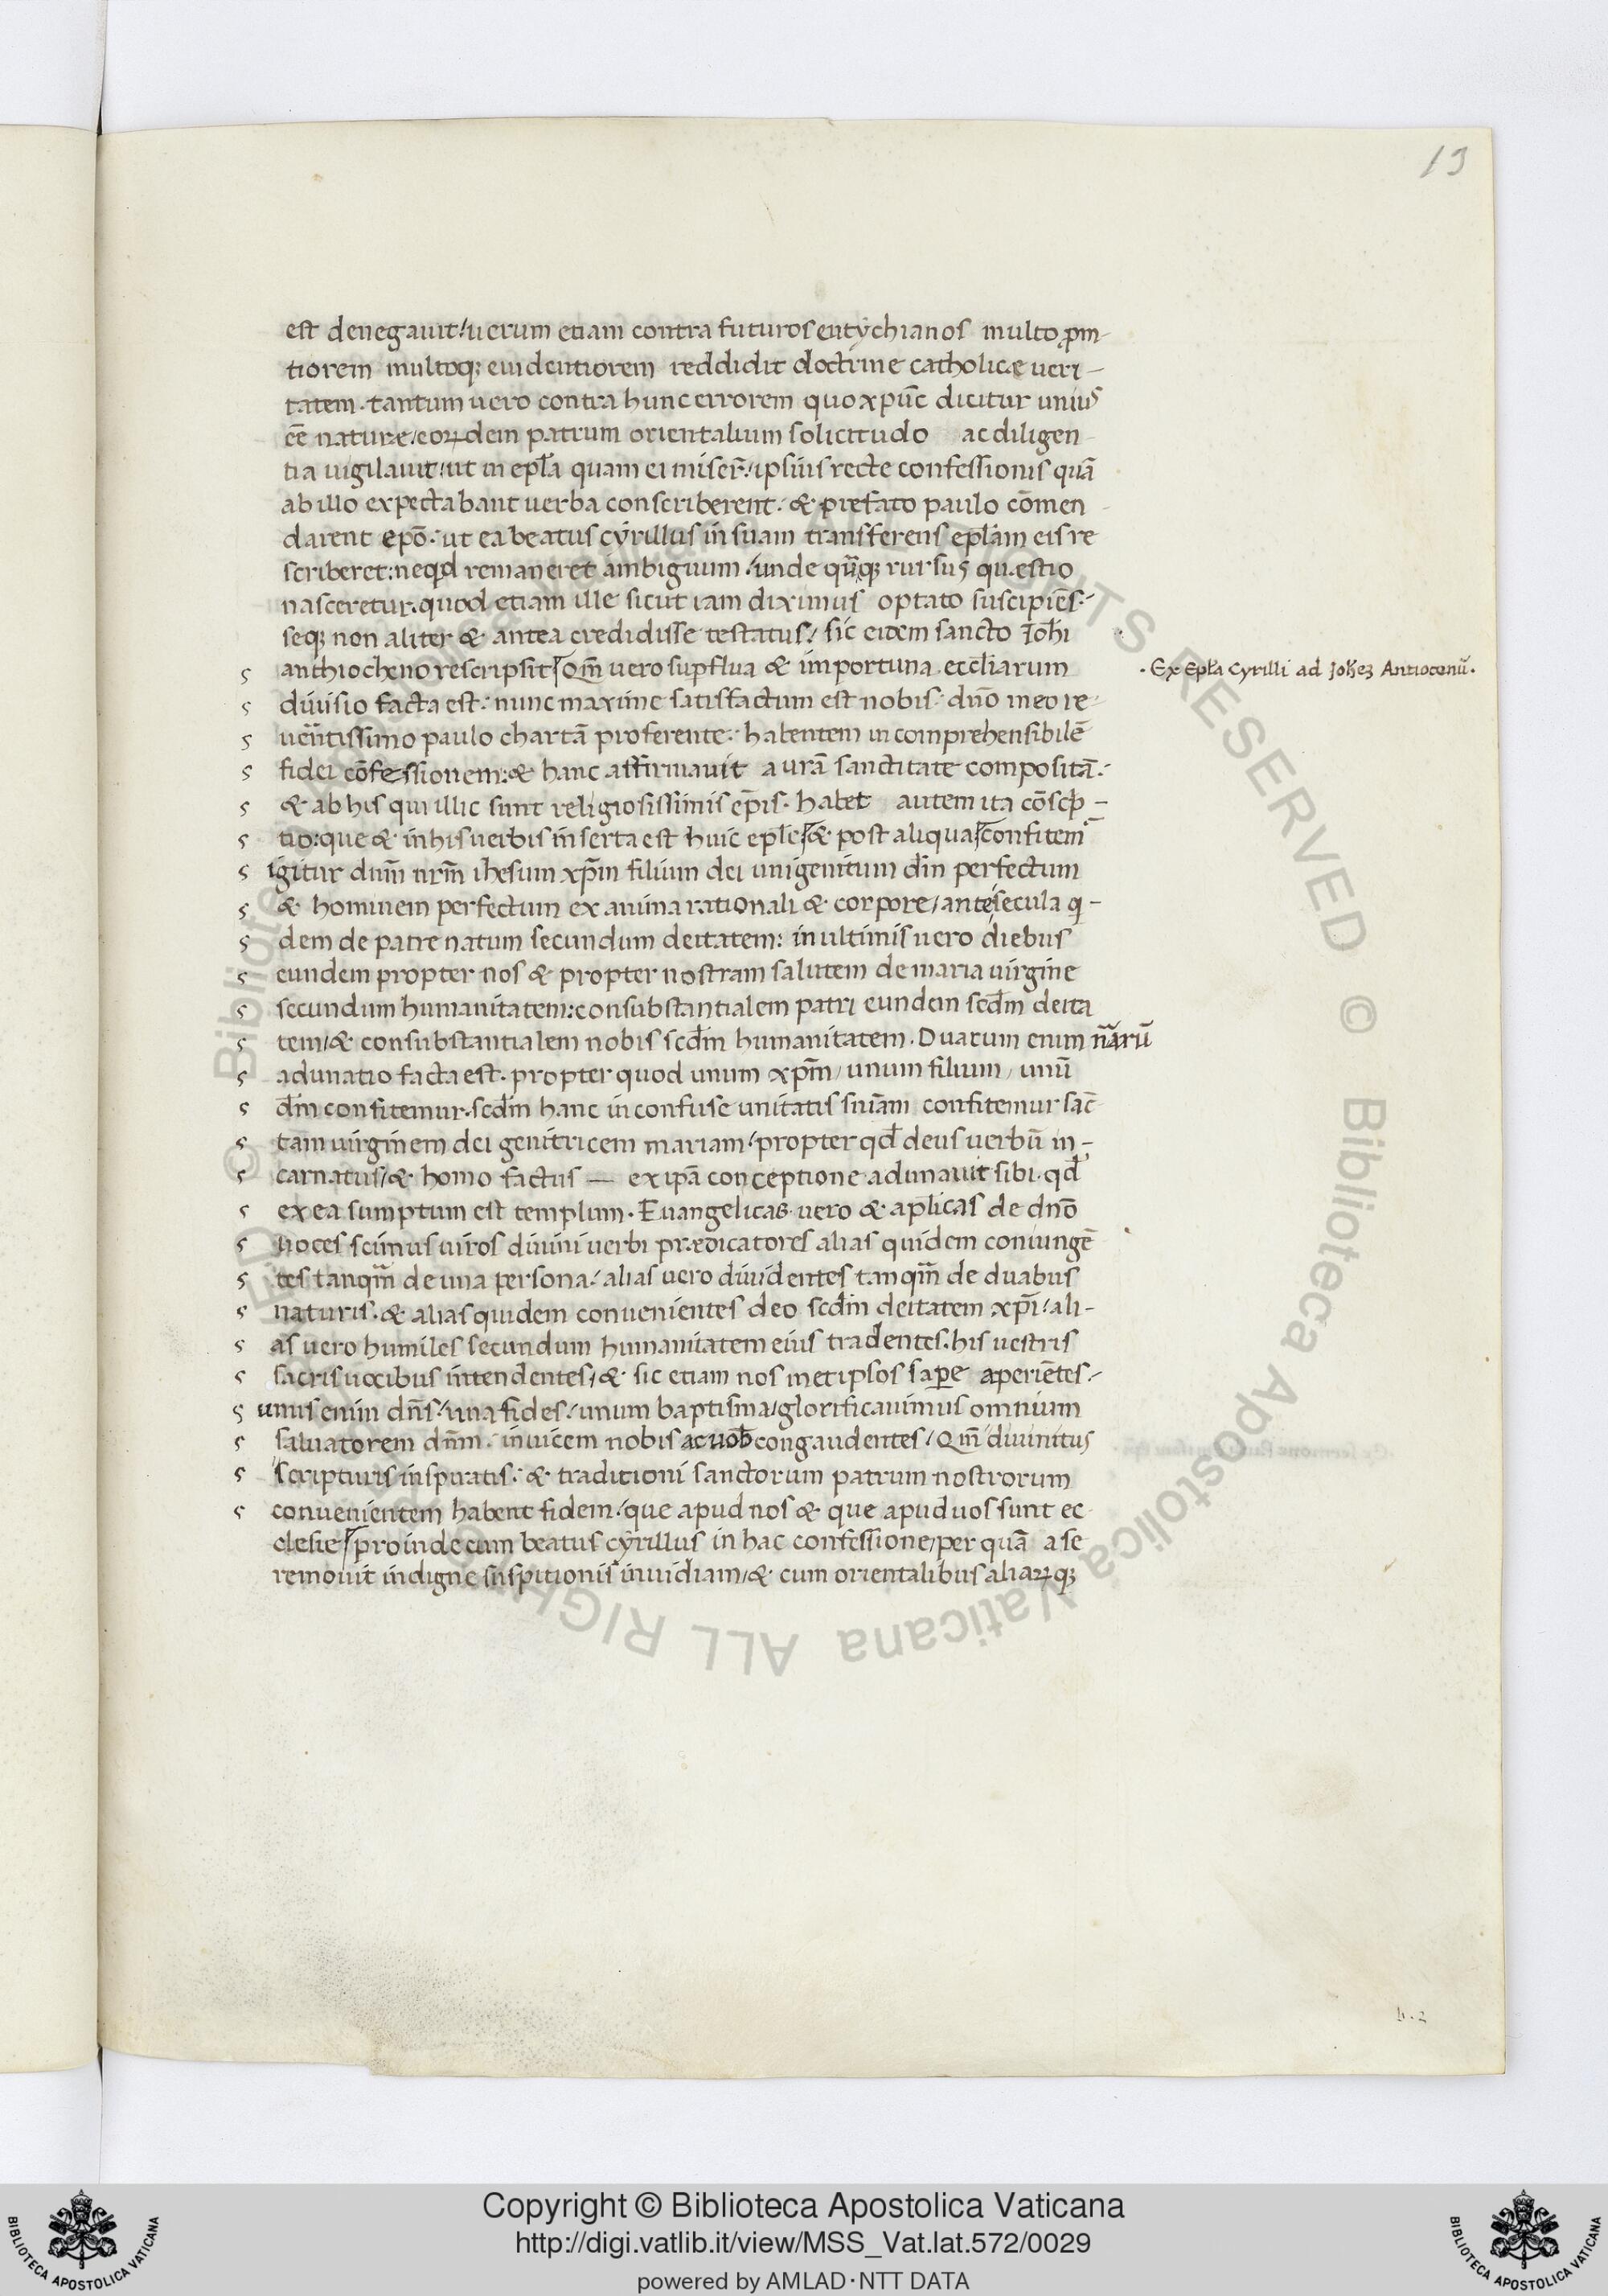 13
est denegauit / uerum etiam contra futuros eutychianos multo ꝓm
tiorem multoqꝫ euidentiorem reddidit doctrine catholicæ ueri-
tatem. tantum uero contra hunc errorem quo xpūc dicitur unius
eē nature / eoꝝdem patrum orientalium solicitudo ac diligen
tia uigilauit / ut in epl̄a quam ei miser̄ / ipsius recte confessionis quā
ab illo expectabant uerba conscriberent. & prefato paulo cōmen
darent epō. ut ea beatus cyrillus in suam transferens epl̄am eis re
scriberet: neqd remaneret ambiguum / unde qūqꝫ rursus questio
nasceretur. quod etiam ille sicut iam diximus optato suscipiēs /
seqꝫ non aliter & antea credidisse testatus / sic eidem sancto Joh̄i
anthiocheno rescripsit Qm̄ uero suꝑflua & importuna eccl̄iarum
· Ex Epl̄a Cyrilli ad Joh̄eꝫ Antiocenū.
diuisio facta est: nunc maxime satisfactum est nobis. dn̄o meo re-
uēntissimo paulo chartā proferente. habentem incomprehensibilē
fidei cōfessionem: & hanc affirmauit a urā sanctitate compositā.
& ab his qui illic sunt religiosissimis ep̄is. habet autem ita cōscp̄-
tio: que & in his uerbis inserta est huic eple & post aliqua confitem̄
igitur dum̄ nrm̄ ihesum xp̄m filium dei unigenitum dm̄ perfectum
& hominem perfectum ex anima rationali & corpore / ante secula q-
dem de patre natum secundum deitatem: in ultimis uero diebus
eundem propter nos & propter nostram salutem de maria uirgine
secundum humanitatem: consubstantialem patri eundem scd̄m deita
tem / & consubstantialem nobis scd̄m humanitatem. Duarum enim nārū
adunatio facta est. propter quod unum xp̄m / unum filium / unū
dm̄ confitemur. scd̄m hanc inconfuse unitatis sniam confitemur sac̄
tam uirginem dei genitricem mariam / propter qd̄ deus uerbū in-
carnatus / & homo factus — ex ipā conceptione adunauit sibi. qd̄
ex ea sumptum est templum. Euangelicas uero & aplicas de dnō
uoces scimus uiros diuini uerbi prædicatores alias quidem coniungē
tes tanqm̄ de una persona / alias uero diuidentes tanqm̄ de duabus
naturis. & alias quidem conuenientes deo scd̄m deitatem xpī / ali-
as uero humiles secundum humanitatem eius tradentes. his uestris
sacris uocibus intendentes / & sic etiam nos metipsos saꝑe aperiētes /
unus enim dn̄s / una fides / unum baptisma / glorificauimus omnium
saluatorem dn̄m. inuicem nobis ac uob̄ congaudentes / Qm̄ diuinitus
scripturis inspiratis. & traditioni sanctorum patrum nostrorum
conuenientem habent fidem / que apud nos & que apud uos sunt ec-
clesie proinde cum beatus cyrillus in hac confessione / per quā a se
remouit indigne suspitionis inuidiam / & cum orientalibus aliaꝝqꝫ
b. 2
© Biblioteca Apostolica Vaticana ALL RIGHTS RESERVED
Copyright © Biblioteca Apostolica Vaticana
http://digi.vatlib.it/view/MSS_Vat.lat.572/0029
powered by AMLAD·NTT DATA
BIBLIOTECA APOSTOLICA VATICANA
BIBLIOTECA APOSTOLICA VATICANA